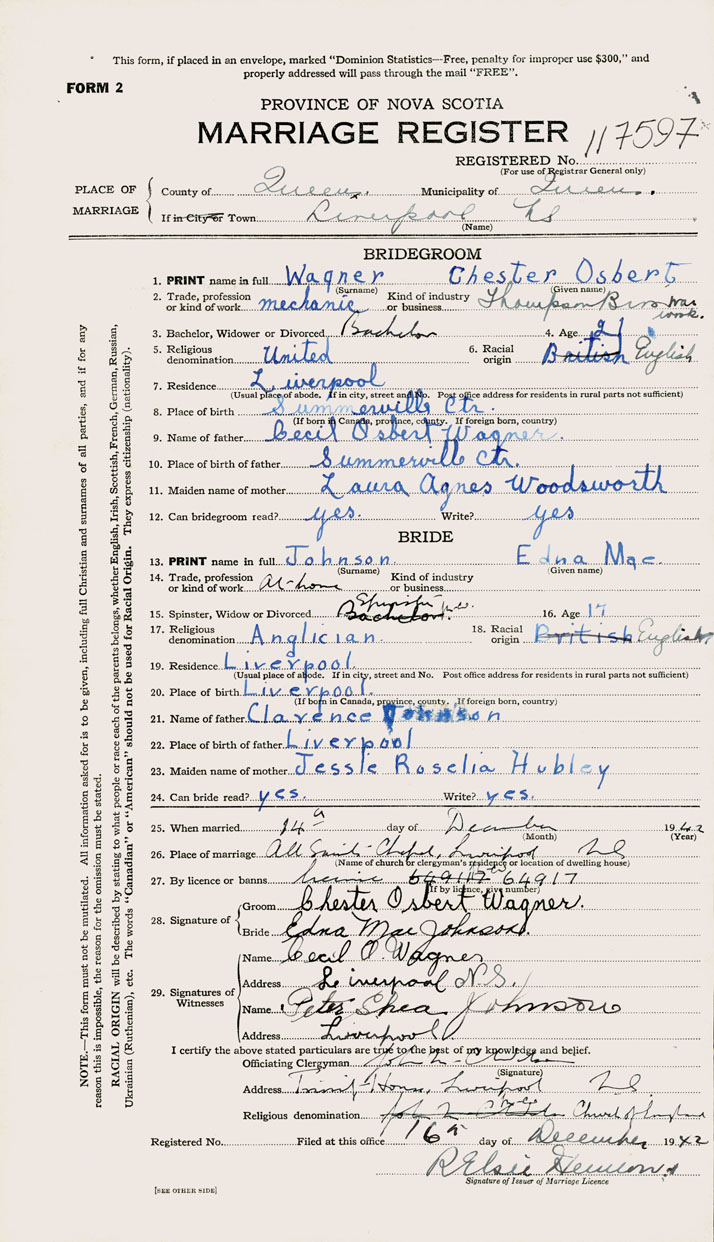 This form, if placed in an envelope, marked "Dominion Statistics—Free, penalty for improper use $300," and
properly addressed will pass through the mail "FREE".
FORM 2
PROVINCE OF NOVA SCOTIA
MARRIAGE REGISTER
117597
REGISTERED No.
(For use of Registrar General only)
PLACE OF MARRIAGE
County of Queens. Municipality of Queens.
If in City or Town Liverpool NS
(Name)
BRIDEGROOM
1. PRINT name in full Wagner Chester Osbert
(Surname) (Given name)
2. Trade, profession or kind of work mechanic Kind of industry or business Thompson Bros war work.
3. Bachelor, Widower or Divorced Bachelor 4. Age 21
5. Religious denomination United 6. Racial origin British English
7. Residence Liverpool
(Usual place of abode. If in city, street and No. Post office address for residents in rural parts not sufficient)
8. Place of birth Summerville Ctr.
(If born in Canada, province, county. If foreign born, country)
9. Name of father Cecil Osbert Wagner.
10. Place of birth of father Summerville Ctr.
11. Maiden name of mother Laura Agnes Woodsworth
12. Can bridegroom read? yes. Write? yes
BRIDE
13. PRINT name in full Johnson Edna Mae.
(Surname) (Given name)
14. Trade, profession or kind of work At-home Kind of industry or business
15. Spinster, Widow or Divorced Bachelor. Spinster 16. Age 17
17. Religious denomination Anglician. 18. Racial origin British English
19. Residence Liverpool.
(Usual place of abode. If in city, street and No. Post office address for residents in rural parts not sufficient)
20. Place of birth Liverpool.
(If born in Canada, province, county. If foreign born, country)
21. Name of father Clarence Johnson
22. Place of birth of father Liverpool
23. Maiden name of mother Jessie Roselia Hubley
24. Can bride read? yes. Write? yes.
25. When married 14th day of December 1942
(Month) (Year)
26. Place of marriage All Saints Chapel, Liverpool NS
(Name of church or clergyman's residence or location of dwelling house)
27. By licence or banns licence 64917
(If by licence, give number)
28. Signature of
Groom Chester Osbert Wagner.
Bride Edna Mae Johnson.
29. Signatures of Witnesses
Name Cecil O. Wagner
Address Liverpool N.S.
Name Peter Shea Johnson
Address Liverpool.
I certify the above stated particulars are true to the best of my knowledge and belief.
Officiating Clergyman
(Signature)
Address Trinity House, Liverpool NS
Religious denomination Church of England
Registered No. Filed at this office 16th day of December 1942
R Elsie
Signature of Issuer of Marriage Licence
[SEE OTHER SIDE]
NOTE.—This form must not be mutilated. All information asked for is to be given, including full Christian and surnames of all parties, and if for any
reason this is impossible, the reason for the omission must be stated.
RACIAL ORIGIN will be described by stating to what people or race each of the parents belongs, whether English, Irish, Scottish, French, German, Russian,
Ukrainian (Ruthenian), etc. The words "Canadian" or "American" should not be used for Racial Origin. They express citizenship (nationality).